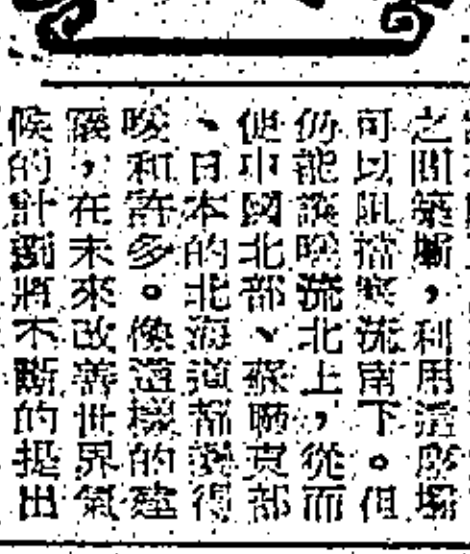 之間築壩，利用這座壩
可以阻擋寒流南下。但
仍能讓暖流北上，從而
使中國北部、蘇聯東部
、日本的北海道都變得
暖和許多。像這樣的建
議，在未來改善世界氣
候的計劃將不斷的提出